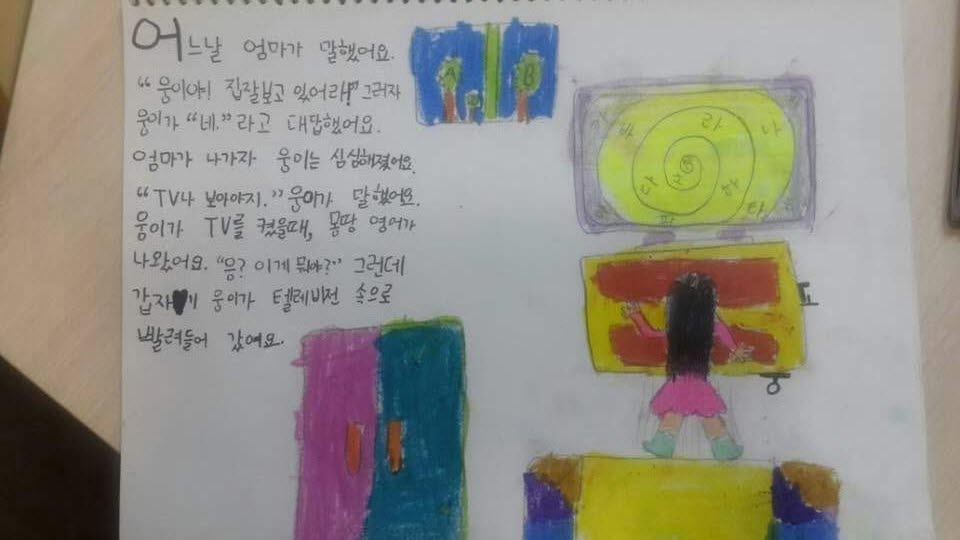 어느날 엄마가 말했어요.
"웅이야! 집잘보고 있어라!" 그러자
웅이가 "네."라고 대답했어요.
엄마가 나가자 웅이는 심심해졌어요.
"TV나 보아야지." 웅이가 말했어요.
웅이가 TV를 켰을때, 몽땅 영어가
나왔어요. "응? 이게 뭐야?" 그런데
갑자기 웅이가 텔레비전 속으로
빨려들어 갔여요.
A B
바 라 나
타
웅